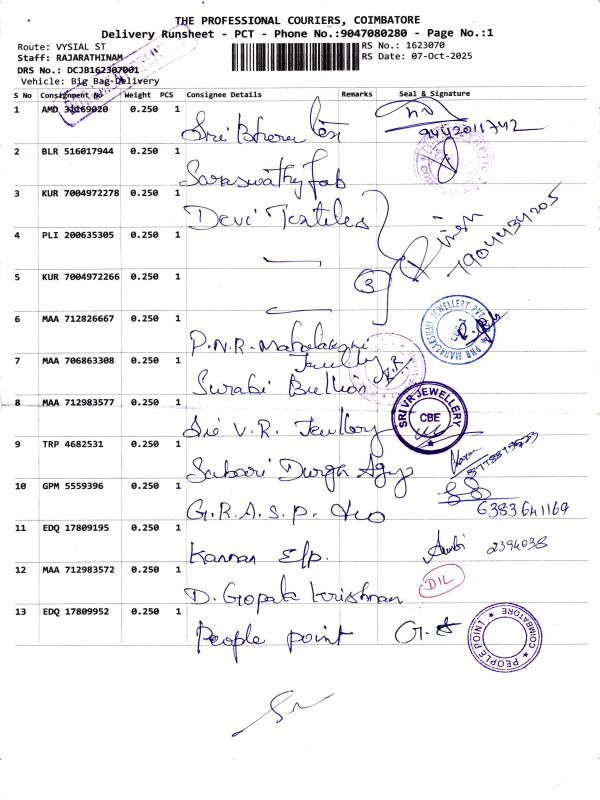 THE PROFESSIONAL COURIERS, COIMBATORE
Delivery Runsheet - PCT - Phone No.:9047080280 - Page No.:1
Route: VYSIAL ST
RS No.: 1623070
Staff: RAJARATHINAM
RS Date: 07-Oct-2025
DRS No.: DCJB162307001
Vehicle: Big Bag-Delivery
S No Consignment No Weight PCS Consignee Details Remarks Seal & Signature
1 AMD 33169020 0.250 1
Sri Bheru 9442011742
2 BLR 516017944 0.250 1
Saraswathy fab
3 KUR 7004972278 0.250 1
Devi Textiles
4 PLI 200635305 0.250 1
7904434205
5 KUR 7004972266 0.250 1
3
6 MAA 712826667 0.250 1
P.N.R. Mahalakshmi Jewellery
PNR MAHALAKSHMI JEWELLERY PVT
7 MAA 706863308 0.250 1
Surabi Bullion
8 MAA 712983577 0.250 1
Sri V.R. Jewllery
SRI VR JEWELLERY CBE
9 TRP 4682531 0.250 1
Sabari Durga Agy
10 GPM 5559396 0.250 1
G.R.A.S.P.
6383641169
11 EDQ 17809195 0.250 1
Kannan
2394038
12 MAA 712983572 0.250 1
D. Gopala krishnan
D/L
13 EDQ 17809952 0.250 1
People point
PEOPLE POINT * COIMBATORE *